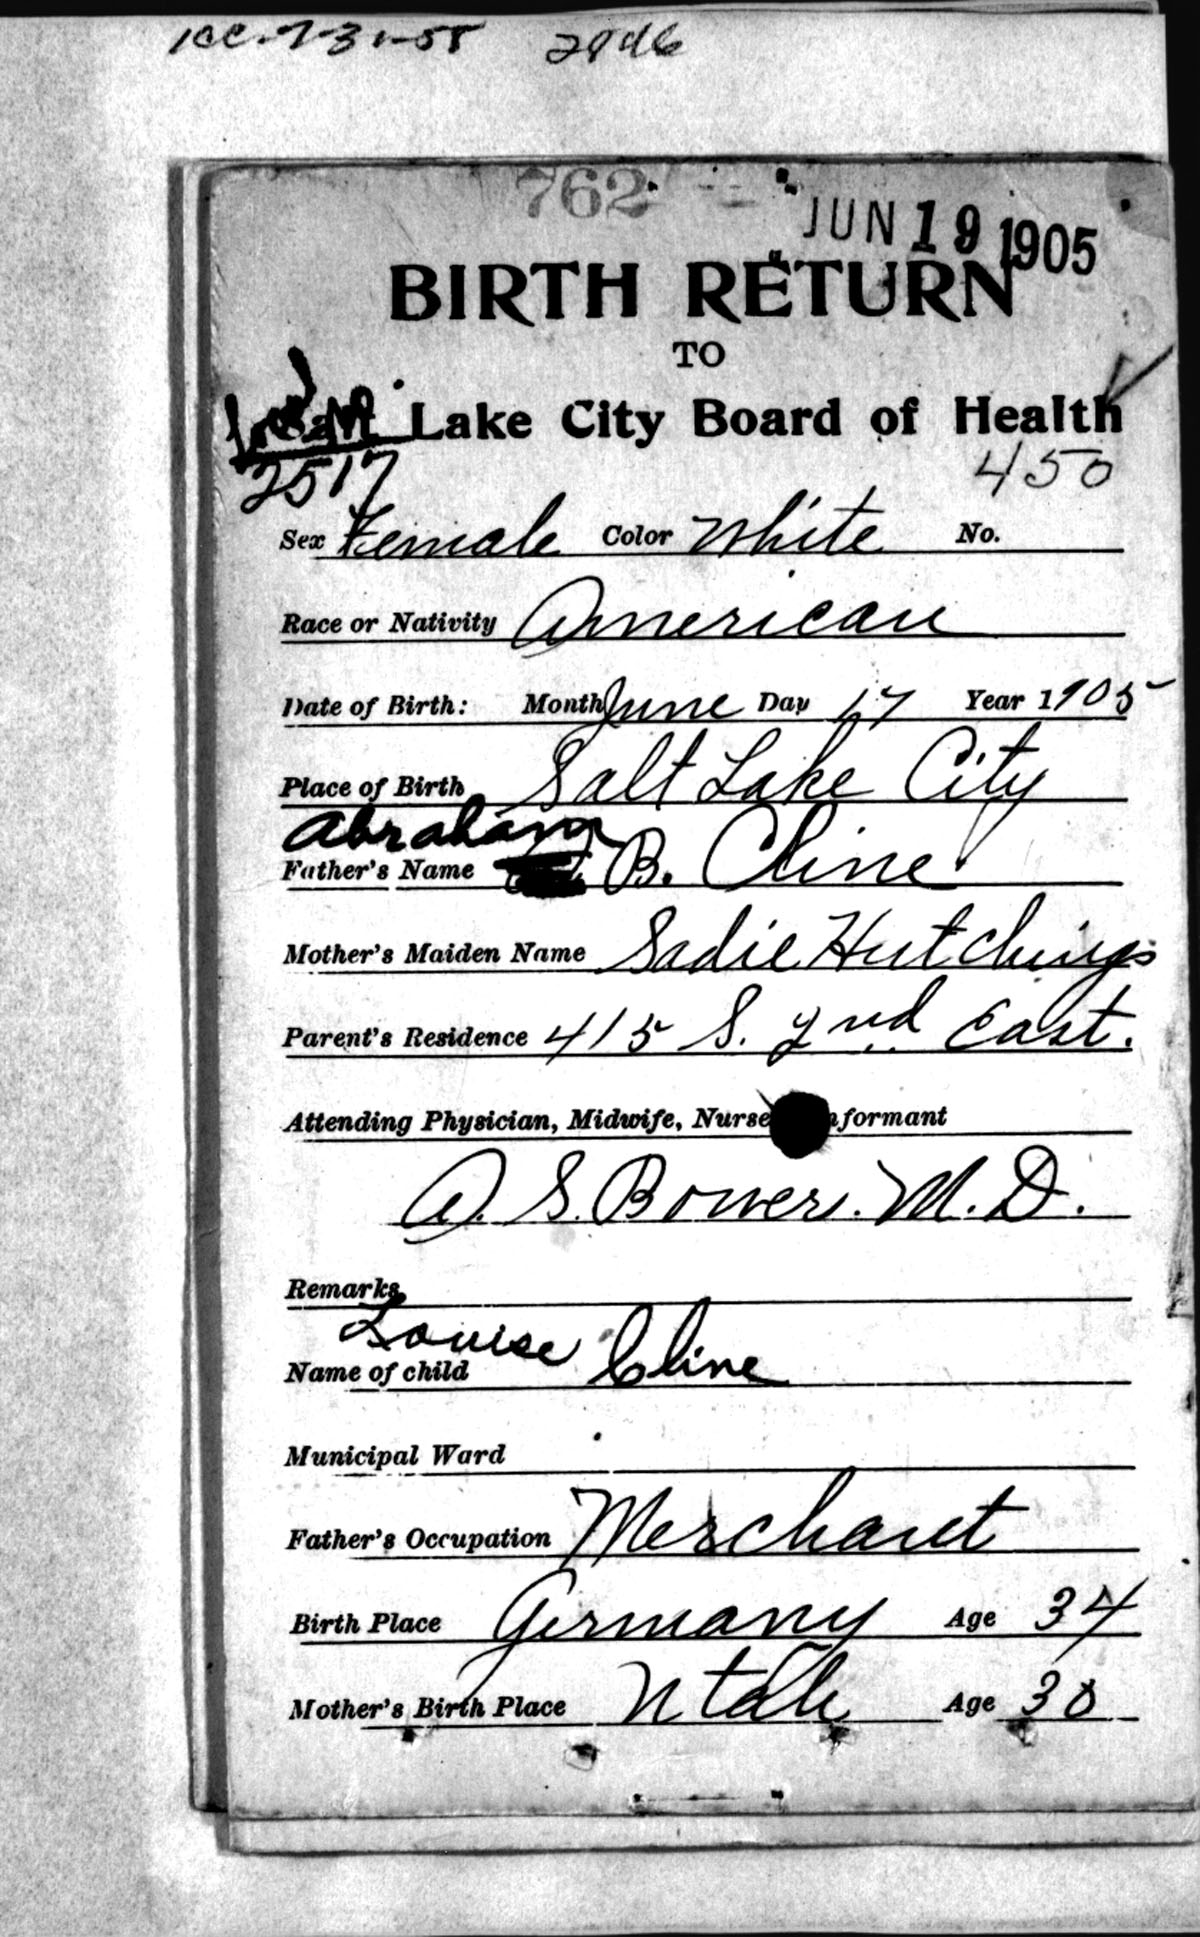 7-31-58 2946
762
JUN 19 1905
BIRTH RETURN
TO
Salt Lake City Board of Health
2517 450
Sex Female Color White No.
Race or Nativity American
Date of Birth: Month June Day 17 Year 1905
Place of Birth Salt Lake City
Abraham
Father's Name B. Cline
Mother's Maiden Name Sadie Hutchings
Parent's Residence 415 S. 2nd East.
Attending Physician, Midwife, Nurse nformant
A. S. Bower. M. D.
Remarks
Louise Cline
Name of child
Municipal Ward
Father's Occupation Merchant
Birth Place Germany Age 34
Mother's Birth Place Utah Age 30